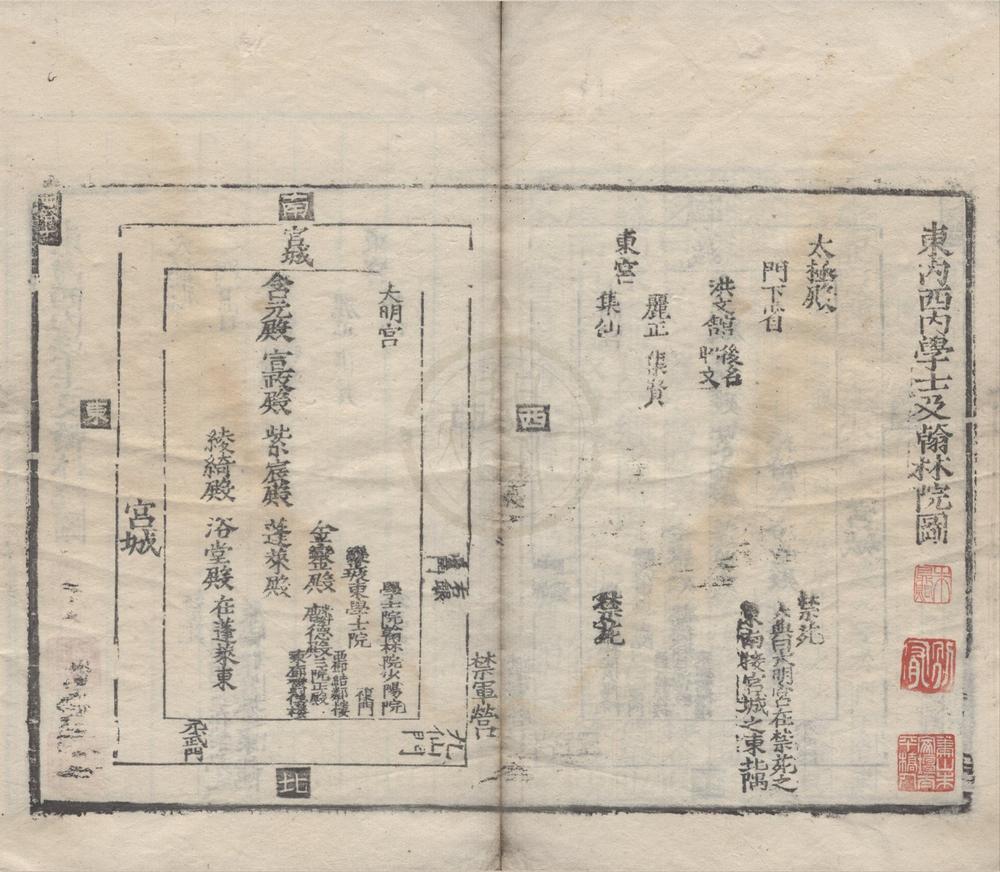 東内西内學士及翰林院圖
太極殿
門下省
洪文館後名
昭文
麗正 集賢
東宮
集仙
禁苑
大興長明宮在禁苑之
東南接宮城之東北隅
禁苑
西
南
宮城
大明宮
含元殿 宣政殿 紫宸殿 蓬萊殿
綾綺殿 浴堂殿 在蓬萊東
金鑾殿
麟德殿三院正殿
東學士院
學士院翰林院少陽院
西廊結鄰樓
宮城
東
右銀
禁軍營
九仙門
元武門
北